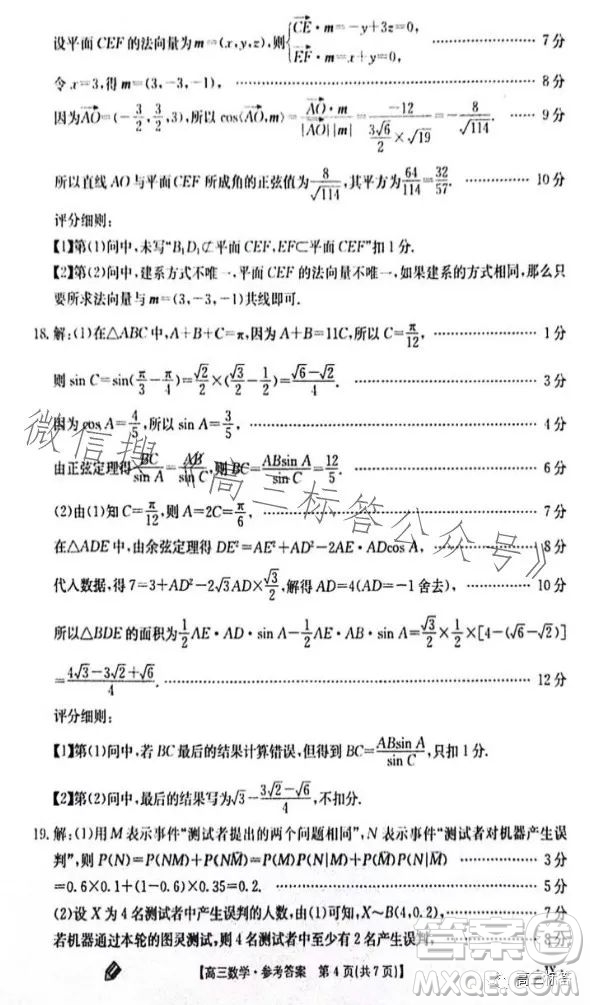 设平面 CEF 的法向量为 m=(x,y,z),则{CE·m=-y+3z=0, EF·m=x+y=0, ……………… 7 分
令 x=3,得 m=(3,-3,-1), ……………… 8 分
因为AO=(-3/2,3/2,3),所以 cos⟨AO,m⟩=AO·m/|AO||m|=-12/(3√6/2×√19)=-8/√114. …… 9 分
所以直线 AO 与平面 CEF 所成角的正弦值为8/√114,其平方为64/114=32/57. ……………… 10 分
评分细则:
【1】第(1)问中,未写“B₁D₁⊄平面 CEF,EF⊂平面 CEF”扣 1 分.
【2】第(2)问中,建系方式不唯一,平面 CEF 的法向量不唯一,如果建系的方式相同,那么只
要所求法向量与 m=(3,-3,-1)共线即可.
18.解:(1)在△ABC 中,A+B+C=π,因为 A+B=11C,所以 C=π/12, ……………… 1 分
则 sin C=sin(π/3-π/4)=√2/2×(√3/2-1/2)=(√6-√2)/4. ……………… 3 分
因为 cos A=4/5,所以 sin A=3/5, ……………… 4 分
由正弦定理得BC/sin A=AB/sin C,则 BC=ABsin A/sin C=12/5. ……………… 6 分
(2)由(1)知 C=π/12,则 A=2C=π/6, ……………… 7 分
在△ADE 中,由余弦定理得 DE²=AE²+AD²-2AE·ADcos A, ……………… 8 分
代入数据,得 7=3+AD²-2√3AD×√3/2,解得 AD=4(AD=-1 舍去), ……………… 10 分
所以△BDE 的面积为1/2AE·AD·sin A-1/2AE·AB·sin A=√3/2×1/2×[4-(√6-√2)]
=(4√3-3√2+√6)/4. ……………… 12 分
评分细则:
【1】第(1)问中,若 BC 最后的结果计算错误,但得到 BC=ABsin A/sin C,只扣 1 分.
【2】第(2)问中,最后的结果写为√3-(3√2-√6)/4,不扣分.
19.解:(1)用 M 表示事件“测试者提出的两个问题相同”,N 表示事件“测试者对机器产生误
判”,则 P(N)=P(NM)+P(NM̄)=P(M)P(N|M)+P(M̄)P(N|M̄) ……………… 3 分
=0.6×0.1+(1-0.6)×0.35=0.2. ……………… 5 分
(2)设 X 为 4 名测试者中产生误判的人数,由(1)可知,X~B(4,0.2), ……………… 7 分
若机器通过本轮的图灵测试,则 4 名测试者中至少有 2 名产生误判, ……………… 8 分
【高三数学·参考答案 第 4 页(共 7 页)】
微信搜《高三标答公众号》
高三标答